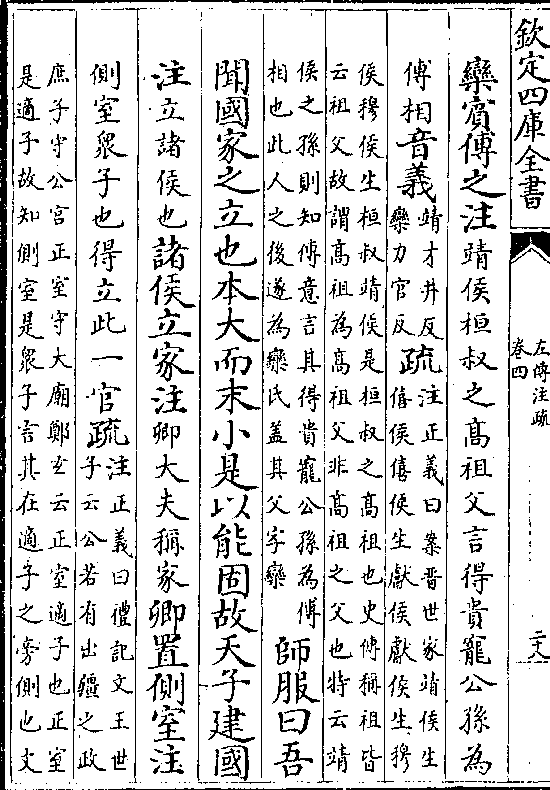 欽定四庫全書
左傳注疏
卷四
欒賓傅之注靖侯桓叔之髙祖父言得貴寵公孫為
傅相音義靖才井反
欒力官反疏注正義曰案晋世家靖侯生
僖侯僖侯生獻侯獻侯生穆
侯穆侯生桓叔靖侯是桓叔之髙祖也史傳稱祖皆
云祖父故謂髙祖為髙祖父非髙祖之父也特云靖
侯之孫則知傅意言其得貴寵公孫為傅
相也此人之後遂為欒氏盖其父字欒師服曰吾
聞國家之立也本大而末小是以能固故天子建國
注立諸侯也諸侯立家注卿大夫稱家卿置側室注
側室衆子也得立此一官疏注正義曰禮記文王世
子云公若有出疆之政
庶子守公宫正室守大廟鄭𤣥云正室適子也正室
是適子故知側室是衆子言其在適子之旁側也文